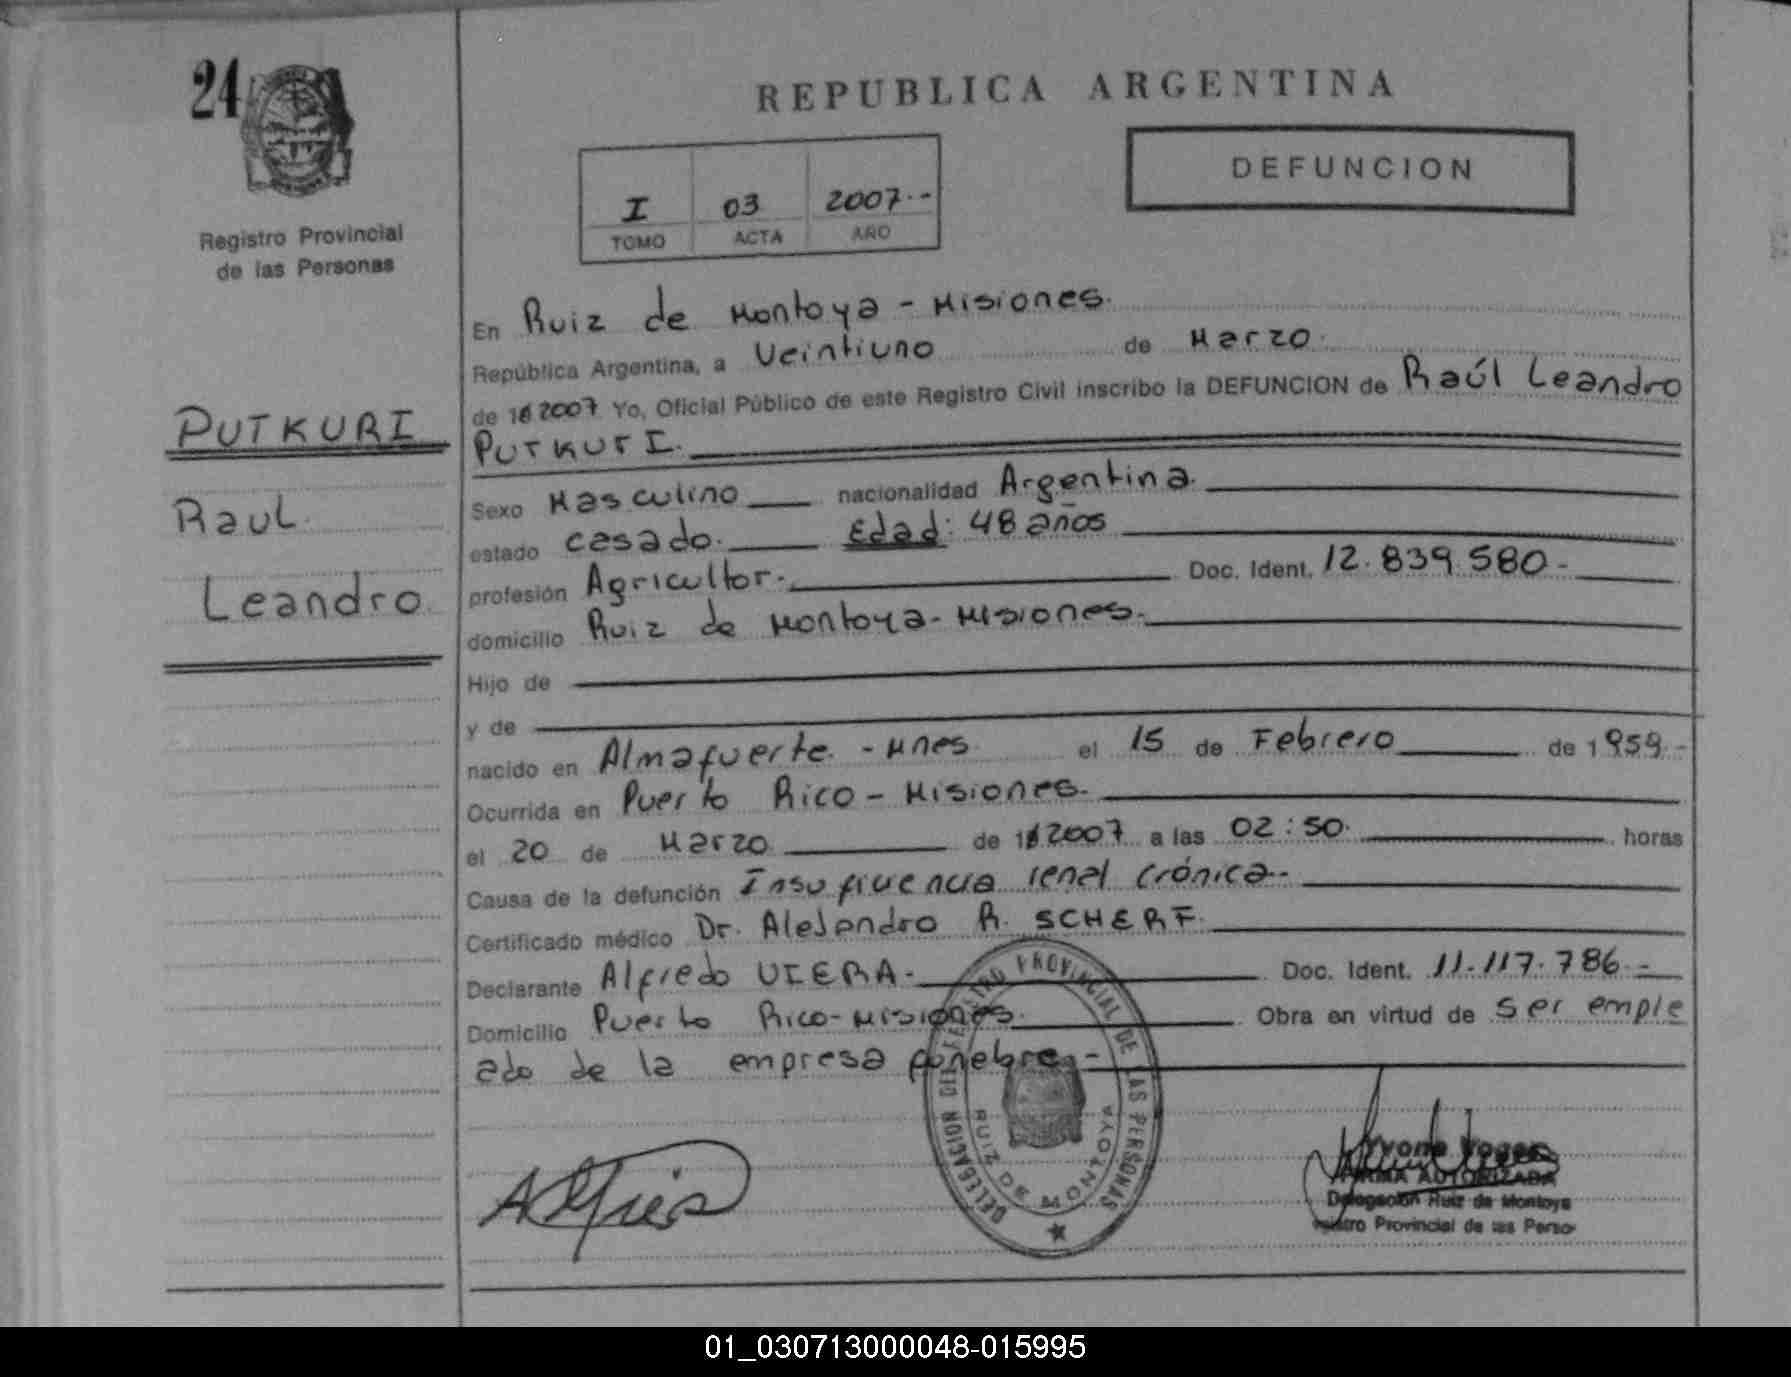 24
Registro Provincial
de las Personas
PUTKURI
Raul
Leandro
REPUBLICA ARGENTINA
I 03 2007.-
TOMO ACTA AÑO
DEFUNCION
En Ruiz de Montoya - Misiones.
República Argentina, a Veintiuno de Marzo.
de 19 2007 Yo, Oficial Público de este Registro Civil inscribo la DEFUNCION de Raúl Leandro
PUTKURI.
Sexo Masculino nacionalidad Argentina.
estado casado. Edad: 48 años
profesión Agricultor.- Doc. Ident. 12.839.580-
domicilio Ruiz de Montoya - Misiones.-
Hijo de
y de
nacido en Almafuerte. - Mnes. el 15 de Febrero de 1959.-
Ocurrida en Puerto Rico - Misiones.
el 20 de Marzo de 19 2007 a las 02:50. horas
Causa de la defunción Insuficiencia renal crónica.-
Certificado médico Dr. Alejandro R. SCHERF.
Declarante Alfredo VIERA.- Doc. Ident. 11.117.786.-
Domicilio Puerto Rico - Misiones. Obra en virtud de ser emple
ado de la empresa fúnebre.-
DELEGACION DEL REGISTRO PROVINCIAL DE LAS PERSONAS
RUIZ DE MONTOYA
FIRMA AUTORIZADA
Delegación Ruiz de Montoya
Registro Provincial de las Perso
01_030713000048-015995